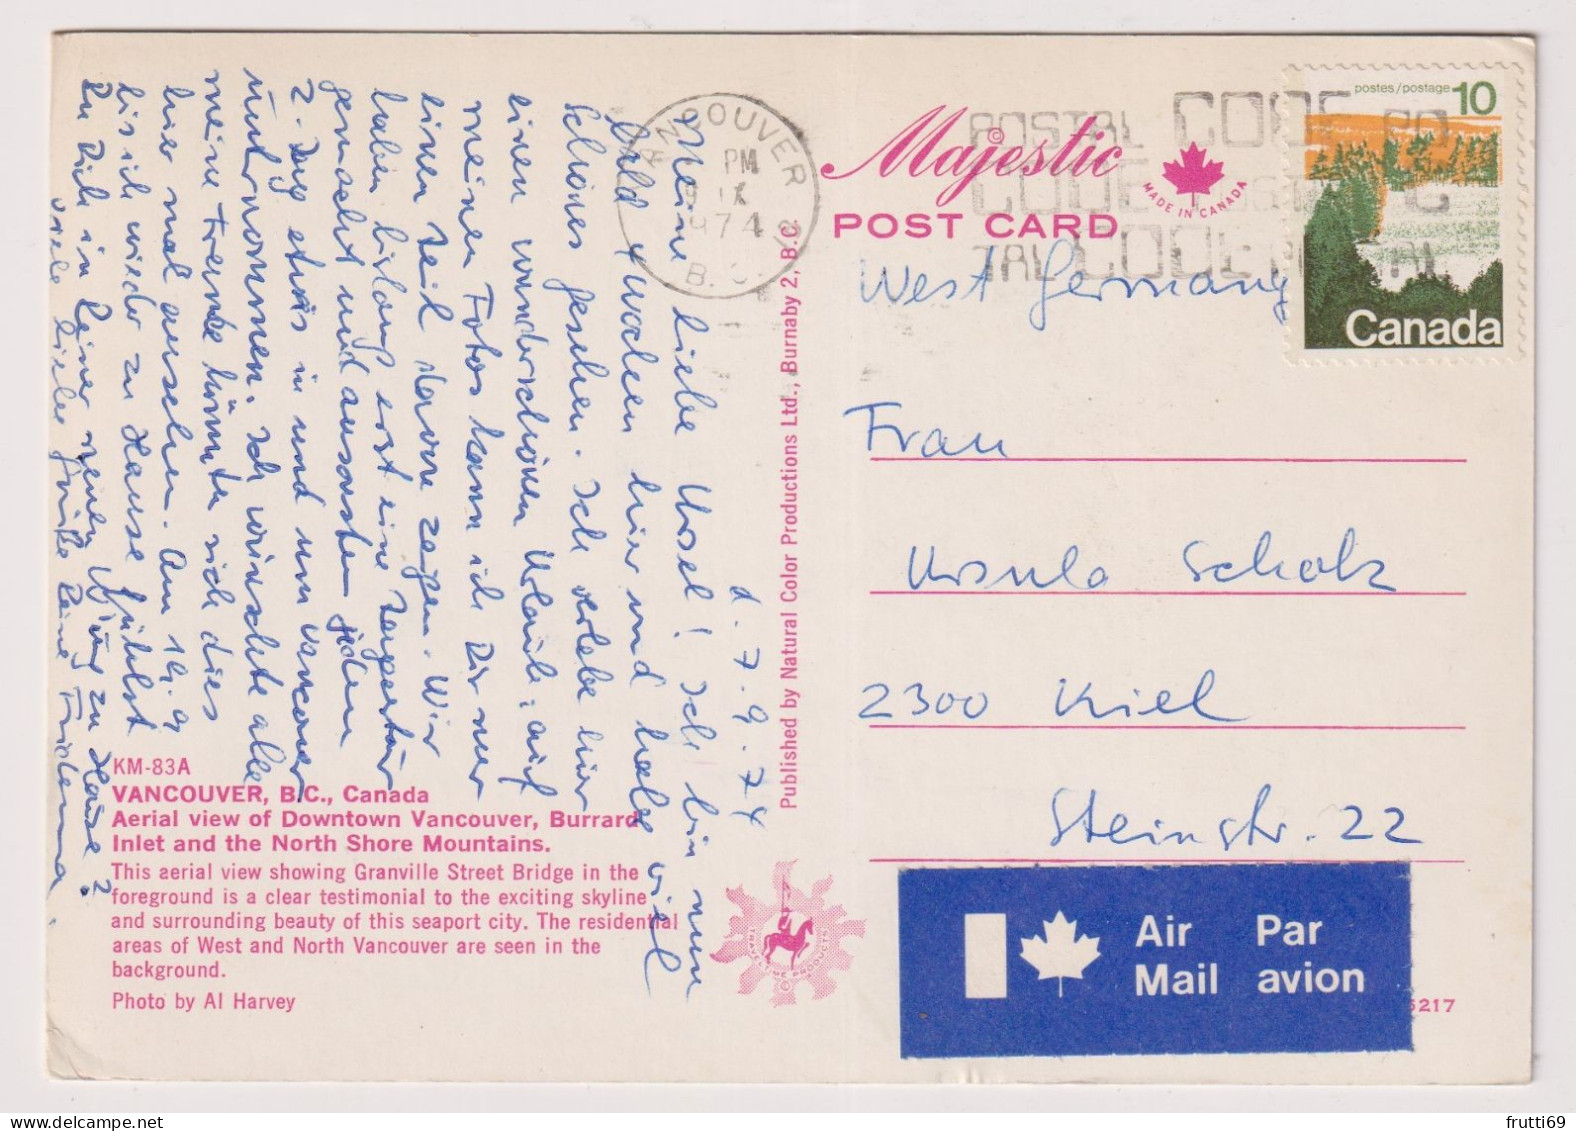 d. 7.9.74
Meine liebe Ursel! Ich bin nun
bald 4 Wochen hier und habe viel
Schönes gesehen. Ich erlebe hier
einen wunderschönen Urlaub, auf
meinen Fotos kann ich Dir nur
einen Teil davon zeigen. Wir
haben bislang erst eine
gemacht und ansonsten jeden
2. Tag etwas in und um Vancouver
unternommen. Ich wünschte alle
meine Freunde könnten sich dies
hier mal ansehen. Am 14.9.
bis ich wieder zu Hause. Fühlst
Du Dich in Deiner neuen zu Hause?
Viele liebe Grüße Deine
KM-83A
VANCOUVER, B.C., Canada
Aerial view of Downtown Vancouver, Burrard
Inlet and the North Shore Mountains.
This aerial view showing Granville Street Bridge in the
foreground is a clear testimonial to the exciting skyline
and surrounding beauty of this seaport city. The residential
areas of West and North Vancouver are seen in the
background.
Photo by Al Harvey
Published by Natural Color Productions Ltd., Burnaby 2, B.C.
TRAVELTIME PRODUCTS ©
VANCOUVER
PM
9 IX
1974
B.C.
POSTAL CODE PO
CODE POSTAL C
TAL CODE POSTAL
Majestic ©
POST CARD
MADE IN CANADA
postes/postage 10
Canada
West Germany
Frau
Ursula Scholz
2300 Kiel
Steinstr. 22
Air Par
Mail avion
5217
frutti69